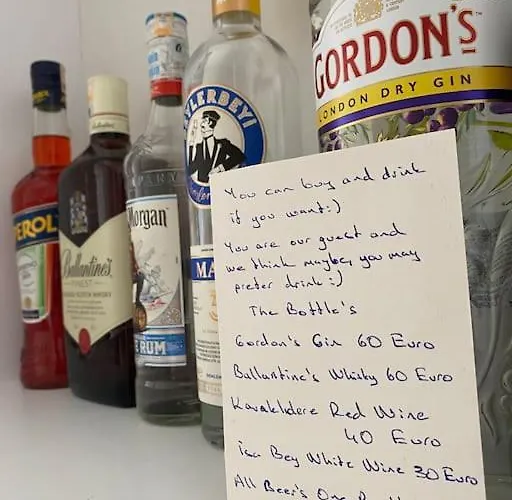 GORDON'S
LONDON DRY GIN
YLERBEYI
MA
Morgan
E RUM
Ballantine's
FINEST
PEROL
You can buy and drink
if you want:)
You are our guest and
we think maybe, you may
prefer drink :)
The Bottle's
Gordon's Gin 60 Euro
Ballantine's Whisky 60 Euro
Kavaklıdere Red Wine
40 Euro
İsa Bey White Wine 30 Euro
All Beer's One